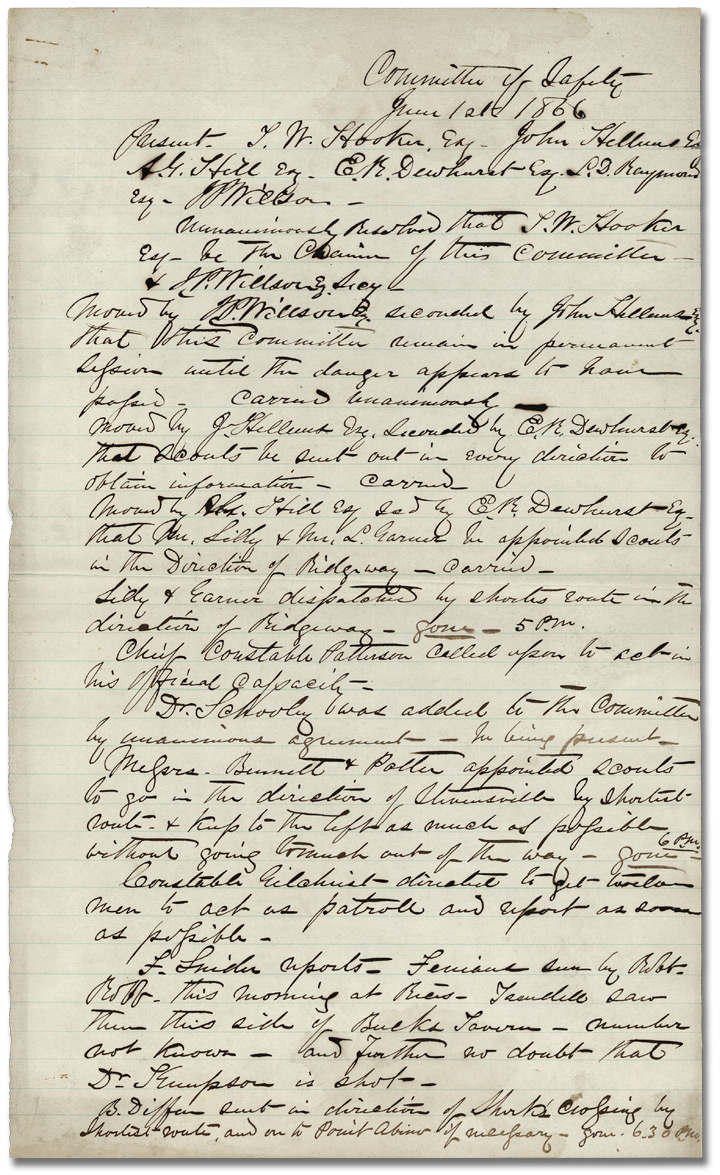 Committee of Safety
June 1st 1866
Present - T. W. Hooker, Esq - John Hellems Esq
A. G. Hill Esq - E. R. Dewhurst Esq. L. D. Raymond
Esq - J P Willson -
Unanimously Resolved that T. W. Hooker
Esq - be the Chairm of this Committee -
& J P. Willson Esq Secy -
Moved by J P. Willson Esq seconded by John Hellems Esq.
that this Committee remain in permanent
session until the danger appears to have
passed - Carried unanimously
Moved by J. Hellems Esq. seconded by E. R. Dewhurst Esq.
that scouts be sent out in every direction to
obtain information - Carried
Moved by Hill Esq 2nd by E. R. Dewhurst Esq.
that Mr. Lidy & Mr. L. Garner be appointed scouts
in the Direction of Ridgeway - Carried -
Lidy & Garner dispatched by shortes route in the
direction of Ridgeway - gone - 5 P.m.
Chief Constable Patterson called upon to act in
his official capacity -
Dr. Schooley was added to the Committee
by unanimous agreement - he being present -
Messrs. Bennett & Potter appointed scouts
to go in the direction of Stevensville by shortest
route - & keep to the left as much as possible
without going tomuch out of the way - gone 6 P.m.
Constable Gilchrist directed to get twelve
men to act as patroll and report as soon
as possible -
F. Snider reports - Fenians seen by Robt.
Robb - this morning at Rices - saw
them this side of Bucks Tavern - number
not known - and further no doubt that
Dr. Kempson is shot -
B. Diffin sent in direction of Sherks Crossing by
shortest route, and on to Point Abino if necessary - gone. 6.30 P.m.